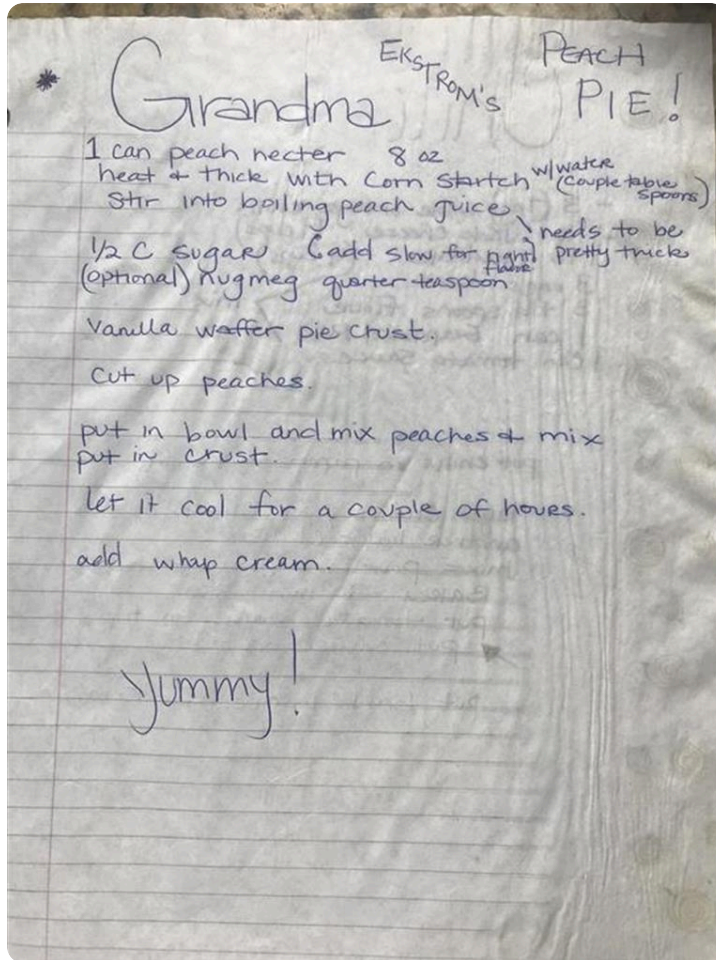 * Grandma EKSTROM'S PEACH PIE!
1 can peach necter 8 oz
heat & thick with Corn Startch w/water (couple table spoons)
Stir into boiling peach juice needs to be pretty thick
1/2 C sugar (add slow for right flavor)
(optional) nugmeg quarter teaspoon
Vanilla waffer pie crust.
Cut up peaches.
put in bowl and mix peaches & mix
put in crust.
let it cool for a couple of houes.
add whap cream.
Yummy!